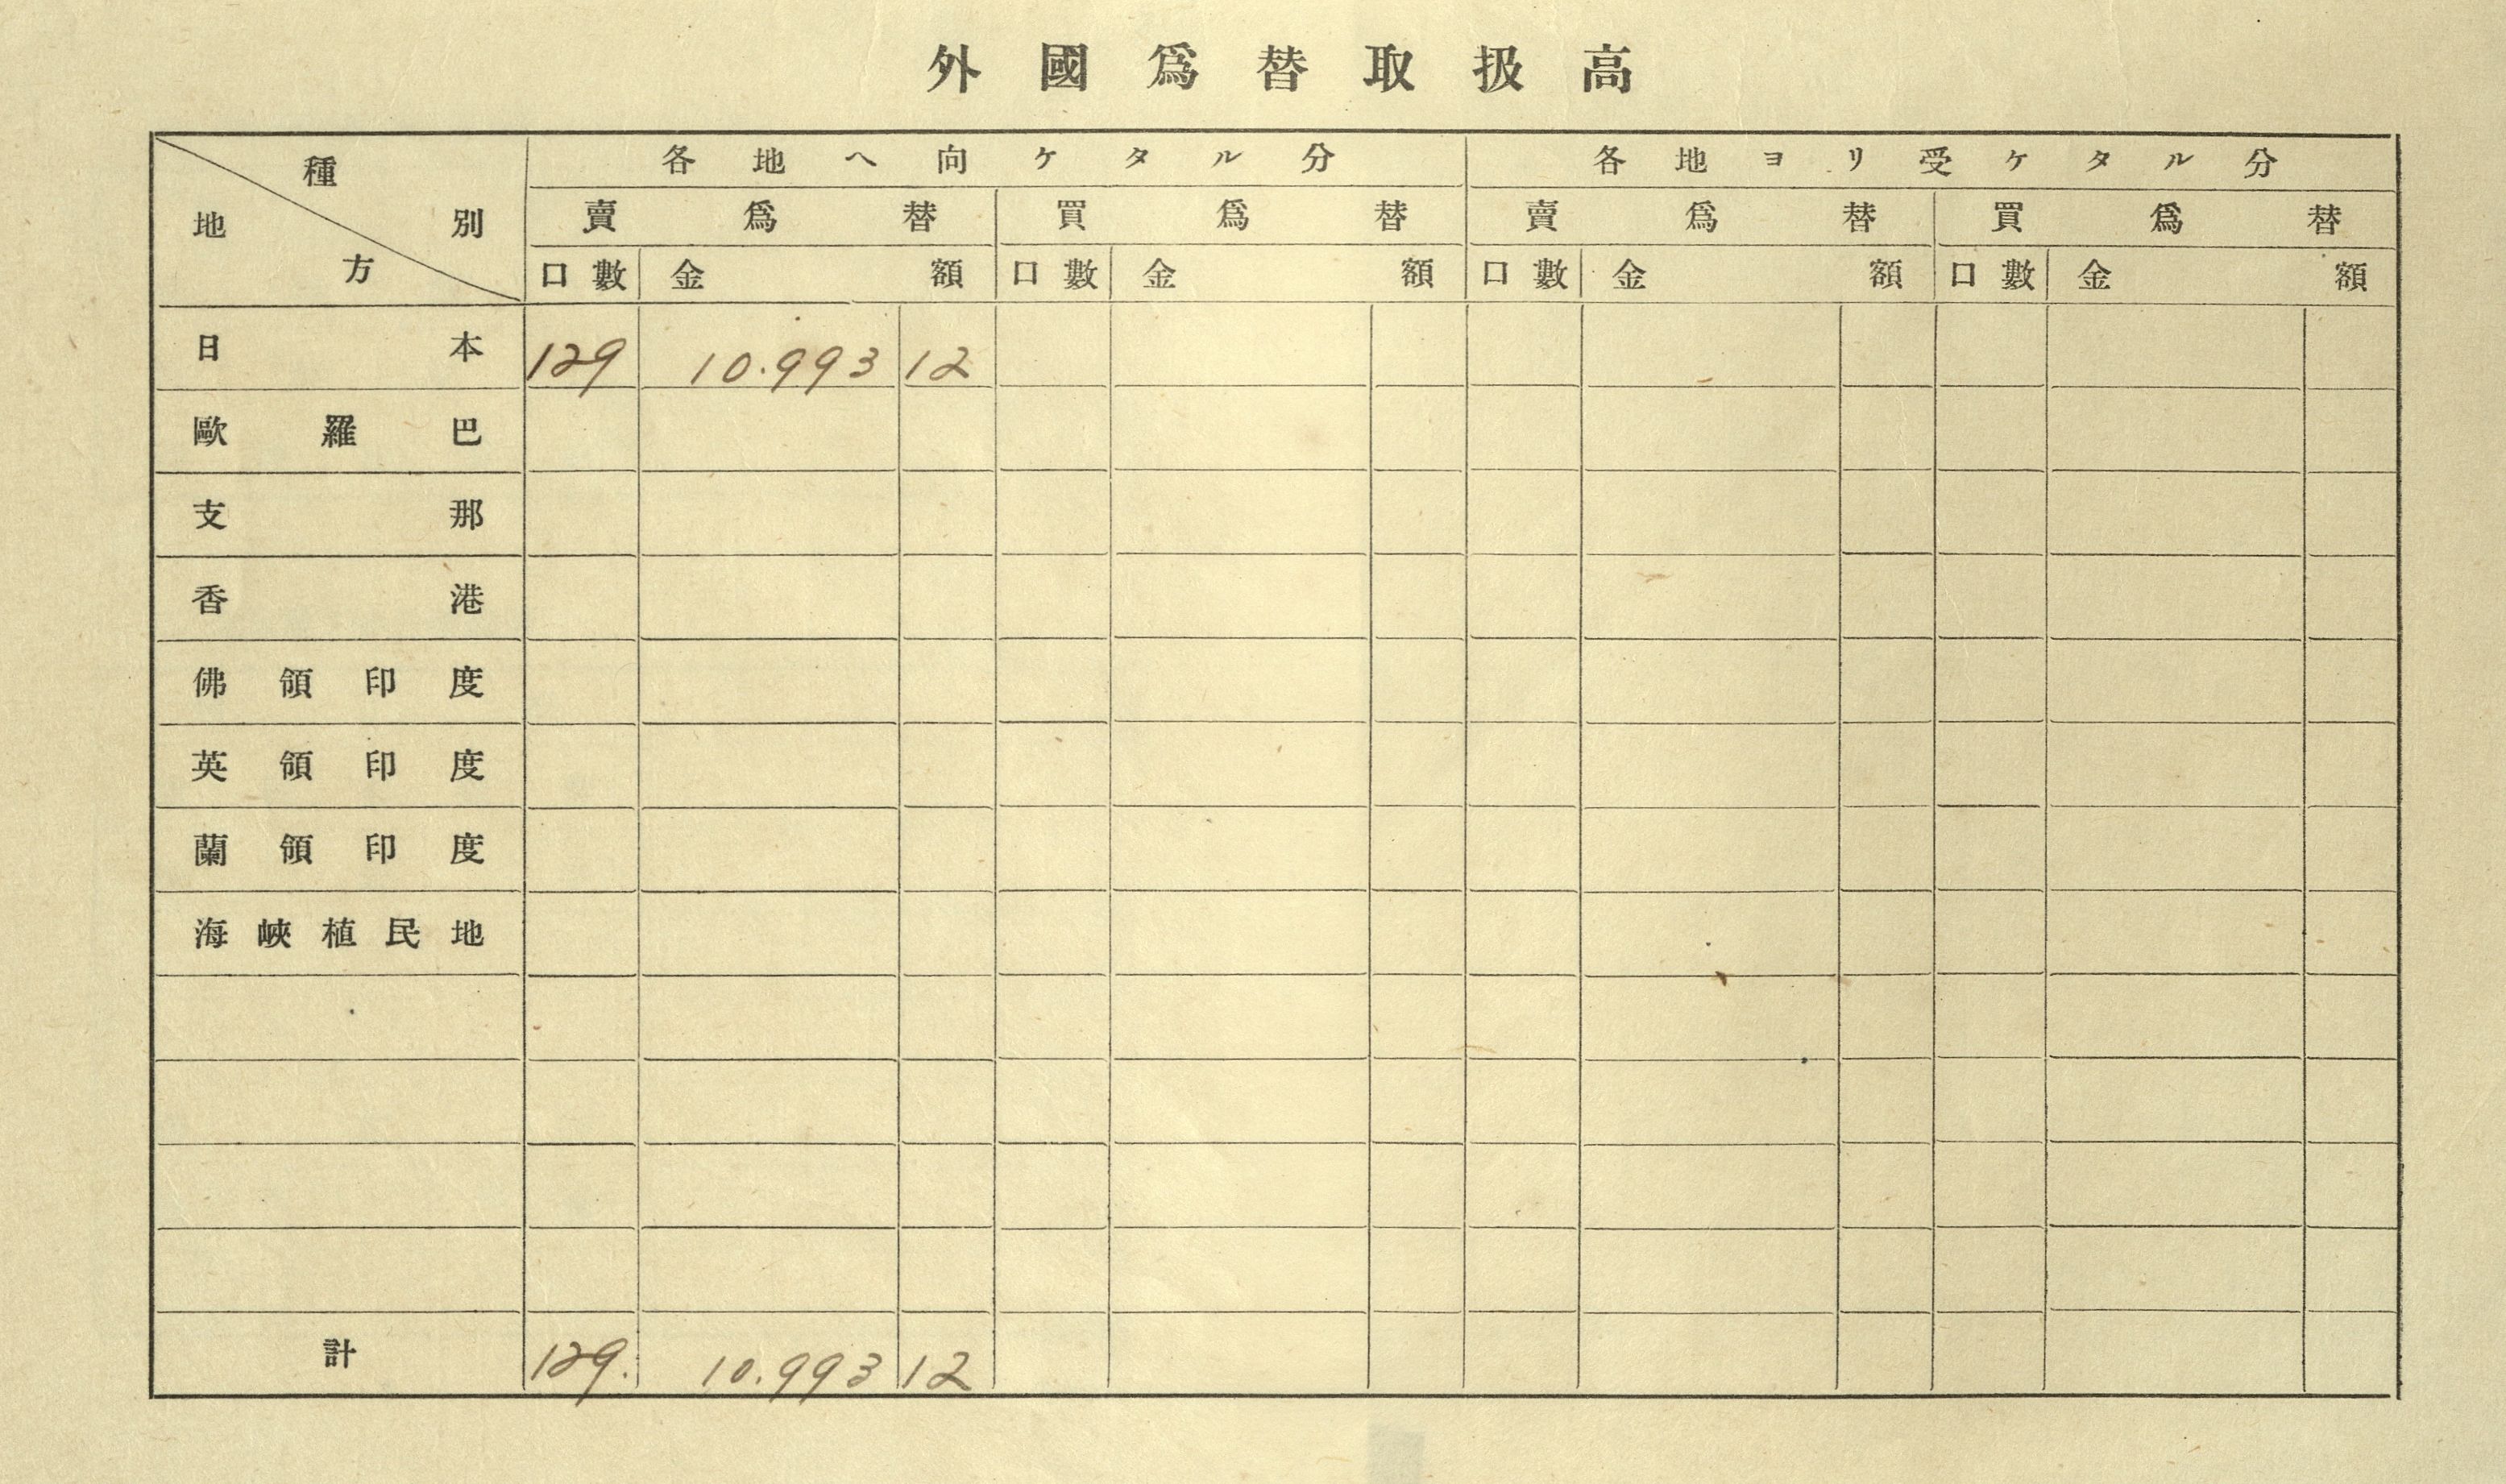 外國爲替取扱高
種別 地方 各地へ向ケタル分 各地ヨリ受ケタル分
賣爲替 買爲替 賣爲替 買爲替
口數 金額 口數 金額 口數 金額 口數 金額
日本 129 10.993 12
歐羅巴
支那
香港
佛領印度
英領印度
蘭領印度
海峽植民地
計 129. 10.993 12